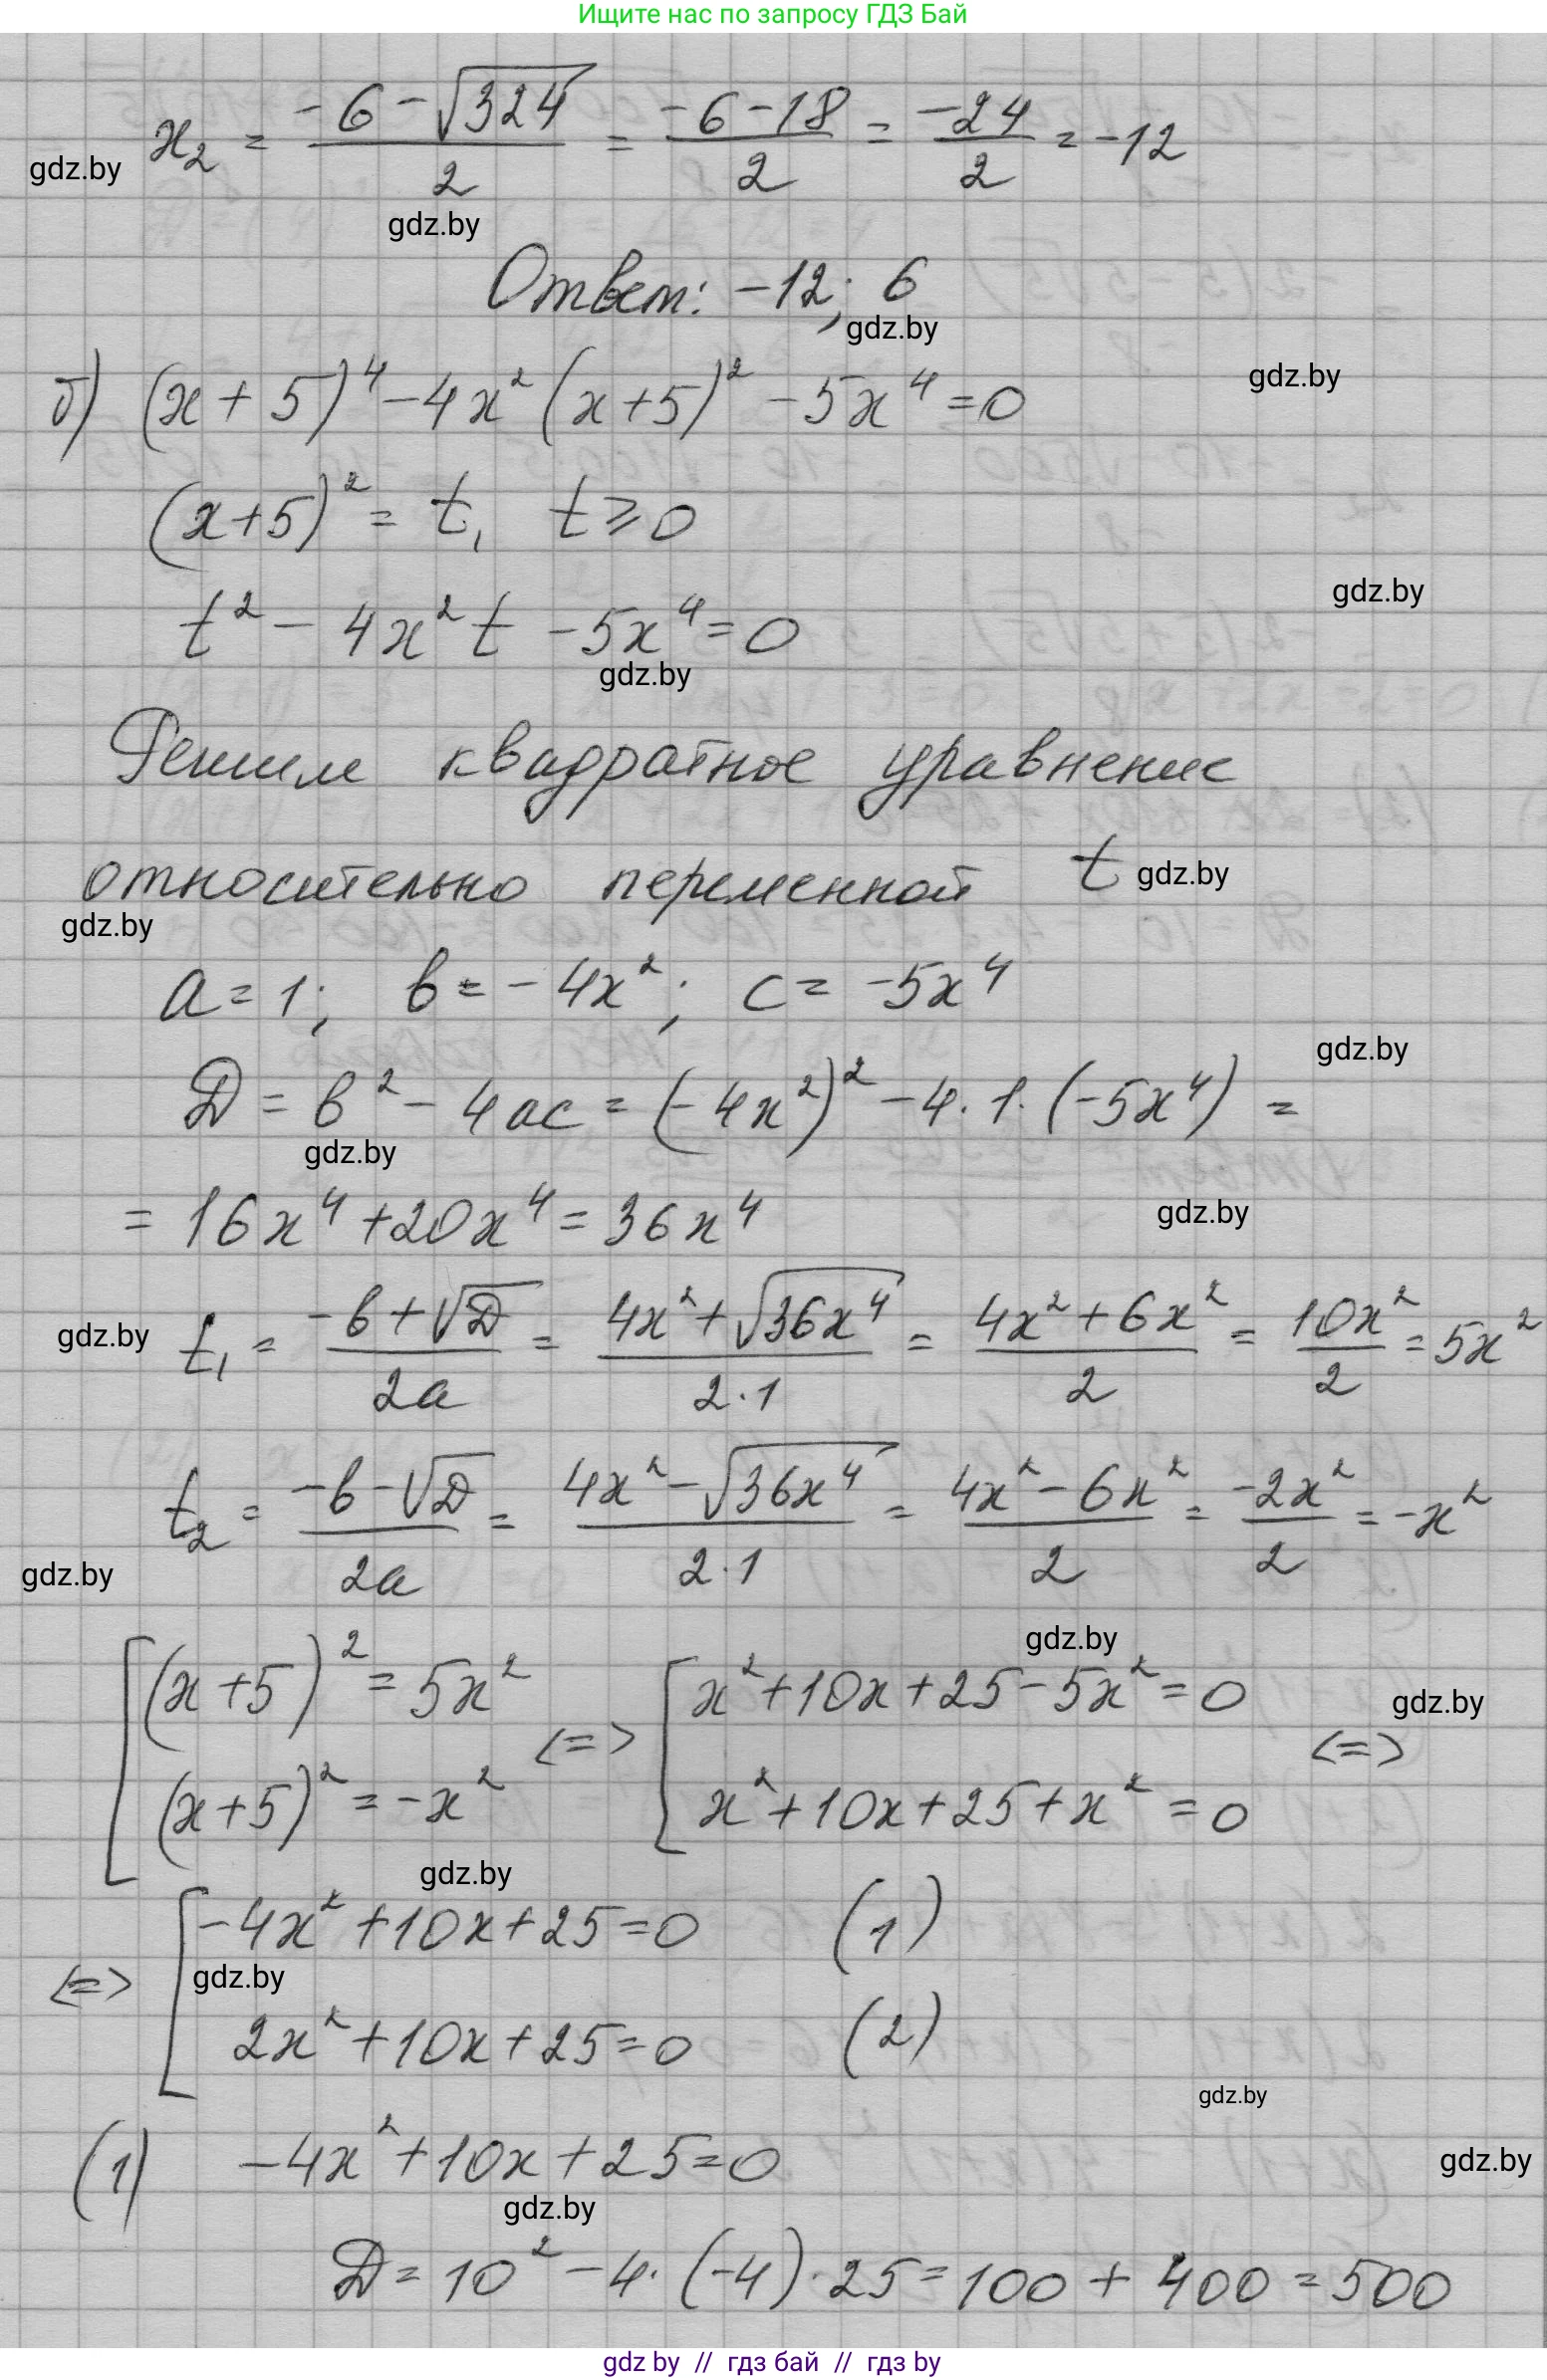 Ищите нас по запросу ГДЗ Бай
x₂ = (-6 - √324)/2 = (-6 - 18)/2 = -24/2 = -12
gdz.by
gdz.by
Ответ: -12; 6
gdz.by
б) (x + 5)⁴ - 4x² (x+5)² - 5x⁴ = 0
gdz.by
(x+5)² = t, t ≥ 0
gdz.by
t² - 4x² t - 5x⁴ = 0
gdz.by
Решим квадратное уравнение
относительно переменной t
gdz.by
gdz.by
a = 1; b = -4x²; c = -5x⁴
gdz.by
D = b² - 4ac = (-4x²)² - 4·1·(-5x⁴) =
gdz.by
= 16x⁴ + 20x⁴ = 36x⁴
gdz.by
t₁ = (-b + √D)/2a = (4x² + √36x⁴)/2·1 = (4x² + 6x²)/2 = 10x²/2 = 5x²
gdz.by
t₂ = (-b - √D)/2a = (4x² - √36x⁴)/2·1 = (4x² - 6x²)/2 = -2x²/2 = -x²
gdz.by
gdz.by
[ (x+5)² = 5x² <=> [ x² + 10x + 25 - 5x² = 0 <=>
gdz.by
(x+5)² = -x² x² + 10x + 25 + x² = 0
gdz.by
<=> [ -4x² + 10x + 25 = 0 (1)
gdz.by
2x² + 10x + 25 = 0 (2)
gdz.by
(1) -4x² + 10x + 25 = 0
gdz.by
gdz.by
D = 10² - 4·(-4)·25 = 100 + 400 = 500
gdz by // гдз бай // гдз by